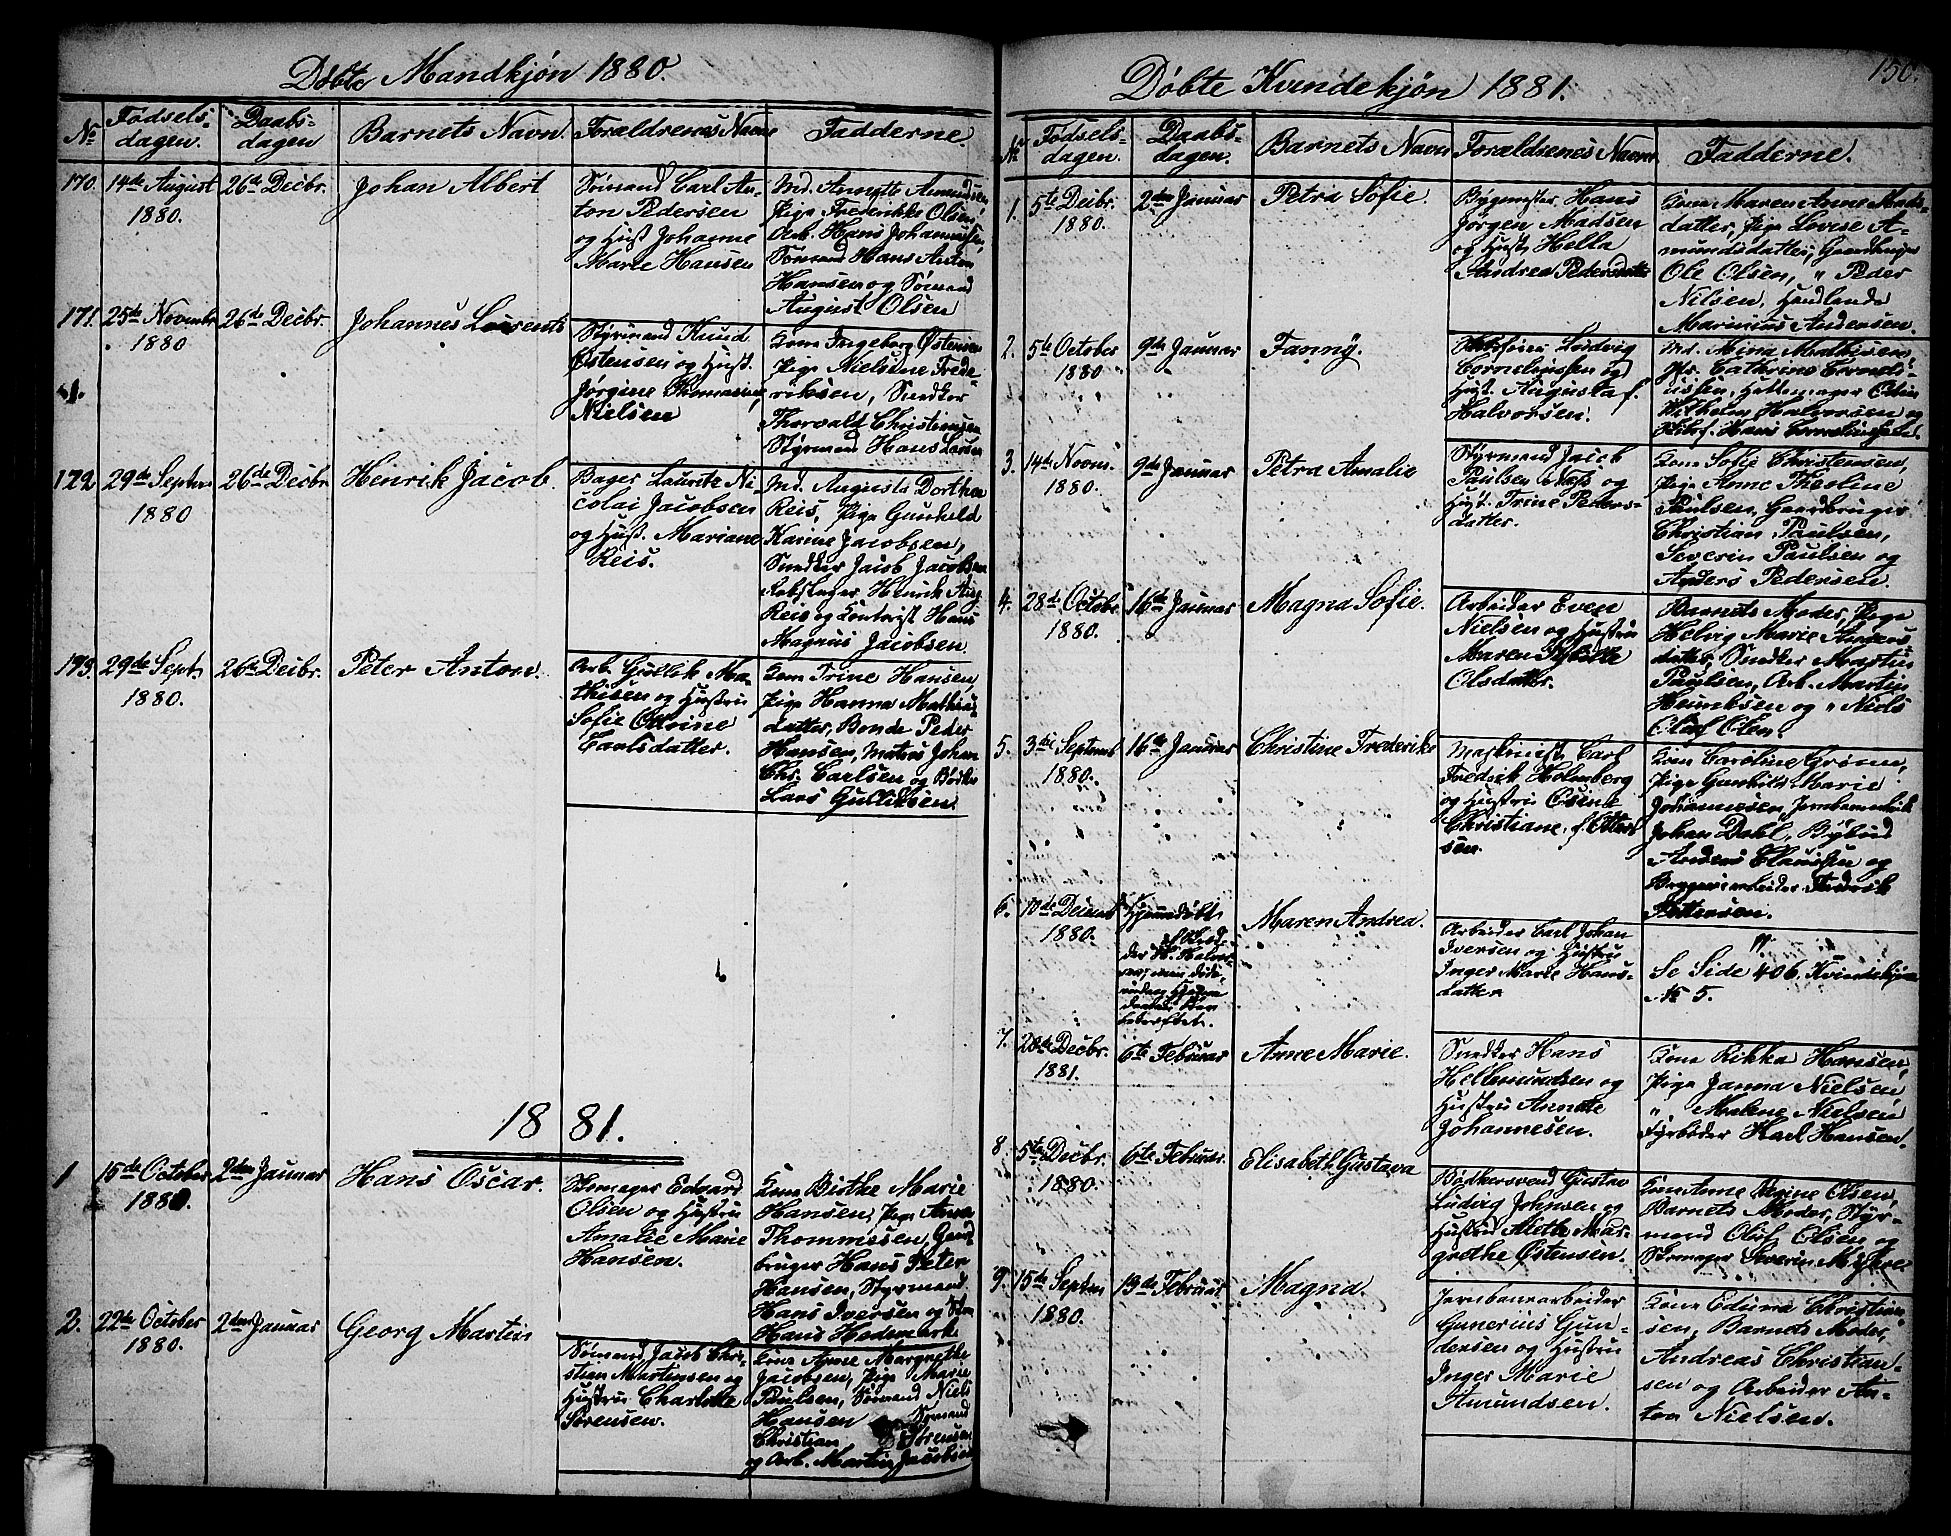 Døbte Mandkjøn 1880.
No Fødselsdagen. Daabsdagen Barnets Navn. Forældrenes Navne Fadderne.
170. 14de August 1880. 26de Decbr. Johan Albert
Sømand Carl An-
ton Pedersen
og Hust. Johanne
Marie Hansen
Md. Annette Amundsen
Pige Frederikke Olsen,
Arb. Hans Johannesen,
Sømand Hans Anton
Hansen og Sømand
August Olsen
171. 25de Novembr 1880 26de Decbr. Johannes Laurents
Styrmand Knud
Østensen og Hust.
Jørgine Thomasine
Nielsen
Kone Ingeborg Østensen
Pige Nielsine Frede-
riksen, Snedker
Thorvald Christensen
Styrmand Hans Larsen
172. 29de Septbr 1880 26de Decbr Henrik Jacob.
Bager Lauritz Ni-
colai Jacobsen
og Hust. Mariane
Reis.
Md. Augusta Dorthea
Reis, Pige Gunhild
Karine Jacobsen,
Snedker Jacob Jacobsen
Rebslager Henrik Aug.
Reis og Hans
Magnus Jacobsen.
173. 29de Septr. 1880. 26de Decbr. Peter Anton.
Arb. Gullik Ma-
thisen og Hustru
Sofie
Carlsdatter.
Kone Trine Hansen
Pige Hanna Mathis-
datter, Bonde Peder
Hansen, Matros Johan
Chr. Carlsen og Bødker
Lars Gulliksen.
1881.
1 15de October 1880. 2den Januar Hans Oscar.
Edvard
Olsen og Hustru
Amalie Marie
Hansen.
Kone Birthe Marie
Hansen, Pige Anne
Thommesen, Gaard-
bruger Hans Peter
Hansen, Styrmand
Hans Iversen og
Hans Hedemark
2. 22de October 1880. 2den Januar Georg Martin
Sømand Jacob Chri-
stian Martinsen og
Hustru Charlotte
Sørensen.
Kone Anne Margrethe
Jacobsen, Pige Marie
Paulsen, Sømand Niels
Hansen Sømand
Christian Sørensen
og Arb. Martin Jacobsen
150.
Døbte Kvindekjøn 1881.
No Fødselsdagen. Daabsdagen. Barnets Navn Forældrenes Navne Fadderne.
1. 5te Decbr. 1880. 2den Januar Petra Sofie.
Bygmester Hans
Jørgen Madsen
og Hustr. Helta
Andrea Pedersdatter
Kone Maren Anne Mads-
datter, Pige Lovise A-
mundsdatter, Gaardbruger
Ole Olsen, " Peder
Nilsen, Handlende
Marinius Andersen.
2. 5te October 1880 9de Januar Fanny.
Ludvig
Corneliussen og
Hust. Augusta f.
Halvorsen.
Md. Mina Mathisen,
Cathrine Corneli-
ussen, Hattemager
Wilhelm Halvorsen og
Hans Corneliussen.
3. 14de Novm. 1880. 9de Januar Petra Amalie
Styrmand Jacob
Paulsen Næss og
Hust. Trine Peders-
datter.
Kone Sofie Christensen,
Pige Anne Theoline
Paulsen, Gaardbruger
Christian Paulsen,
Severin Paulsen og
Anders Pedersen.
4. 28de Octobr. 1880. 16de Januar Magna Sofie.
Arbeider Even
Nielsen og Hustru
Maren
Olsdatter.
Barnets Moder, Pige
Helvig Marie Anders-
datter, Snedker Martin
Paulsen, Arb. Martin
Henriksen og " Niels
Olaf Olsen.
5. 3die Septembr 1880. 16de Januar Christine Frederike
Maskinist Carl
Fredrik Holmberg
og Hustru Elsine
Christiane, f. Otter-
sen.
Kone Caroline Grønn,
Pige Gunhild Marie
Johannesen, Jernbanearbeider
Johan Dahl, Bybud
Anders Claussen og
Bryggeriarbeider Fredrik
Pettersen.
6. 10de Decemb 1880. Hjemmedøbt Maren Andrea.
Arbeider Carl Johan
Iversen og Hustru
Inger Marie Hans-
datter.
Se Side 406. Kvindekjøn
No 5.
7. 20de Decbr. 1881. 6te Februar Anne Marie.
Snedker Hans
Hellemundsen og
Hustru Annette
Johannesen.
Kone Rikka Hansen,
Pige Janna Nielsen
" Malene Nielsen
Fyrbøder Karl Hansen.
8. 5te Decbr. 1880. 6te Februar. Elisabeth Gustava
Bødkersvend Gustav
Ludvig Johnsen og
Hustru Mette Mar-
grethe Østensen.
Kone Anne Regine Olsen,
Barnets Moder, Styr-
mand Olaf Olsen og
Skomager Severin
9. 15de Septem 1880. 13de Februar Magna.
Jernbanearbeider
Gunerius Gun-
dersen og Hustru
Inger Marie
Amundsen.
Kone Edina Christian-
sen, Barnets Moder,
Andreas Christian-
sen og Arbeider An-
ton Nielsen.